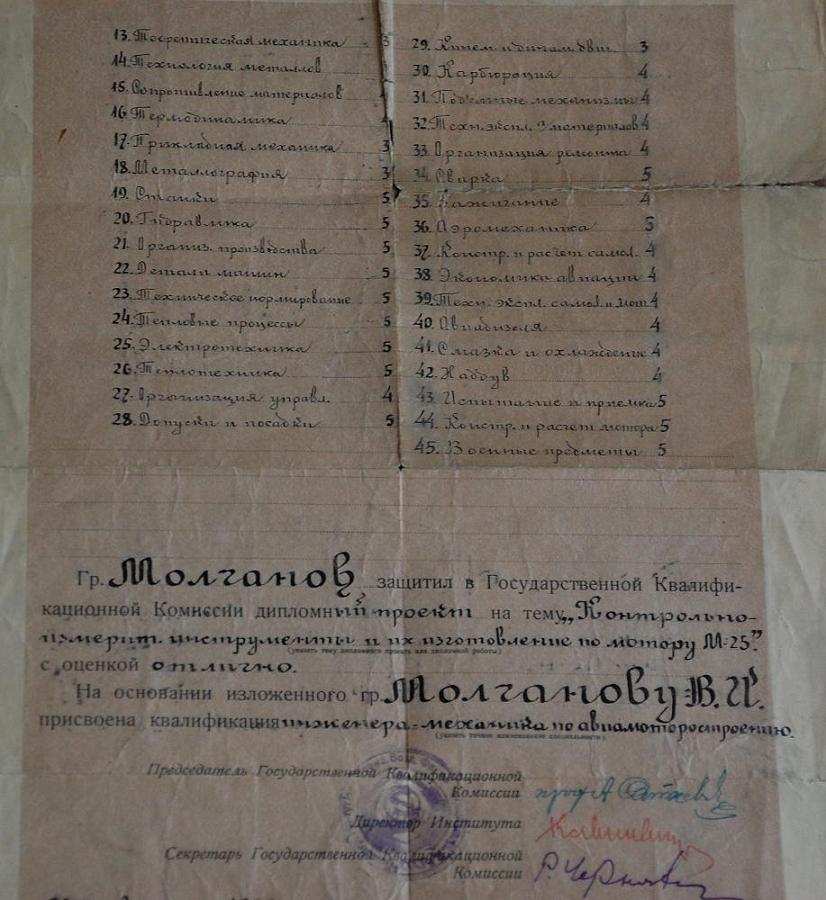 13. Теоретическая механика 3
14. Технология металлов
15. Сопротивление материалов
16. Термодинамика 4
17. Прикладная механика 3
18. Металлография 3
19. Станки 5
20. Гидравлика 5
21. Организ. производства 5
22. Детали машин 5
23. Техническое нормирование 5
24. Тепловые процессы 5
25. Электротехника 5
26. Теплотехника 5
27. Организация управл. 4
28. Допуски и посадки 5
29. Кинем. и динам. двиг. 3
30. Карбюрация 4
31. Подъемные механизмы 4
32. Техн. экспл. материалов 4
33. Организация ремонта 4
34. Сварка 5
35. Зажигание 4
36. Аэромеханика 3
37. Констр. и расчет самол. 4
38. Экономика авиации 4
39. Техн. экспл. самол. и мот. 4
40. Авиадизеля 4
41. Смазка и охлаждение 4
42. Наддув 4
43. Испытание и приемка 5
44. Констр. и расчет мотора 5
45. Военные предметы 5
Гр. Молчанов защитил в Государственной Квалифи-
кационной Комиссии дипломный проект на тему „Контрольно-
измерит. инструменты и их изготовление по мотору М-25”
(указать тему дипломного проекта или дипломной работы)
с оценкой отлично.
На основании изложенного гр. Молчанову В. И.
присвоена квалификация инженера-механика по авиамоторостроению.
(указать точно наименование специальности)
Председатель Государственной Квалификационной
Комиссии проф А
Директор Института
Секретарь Государственной Квалификационной
Комиссии Р. Черняк